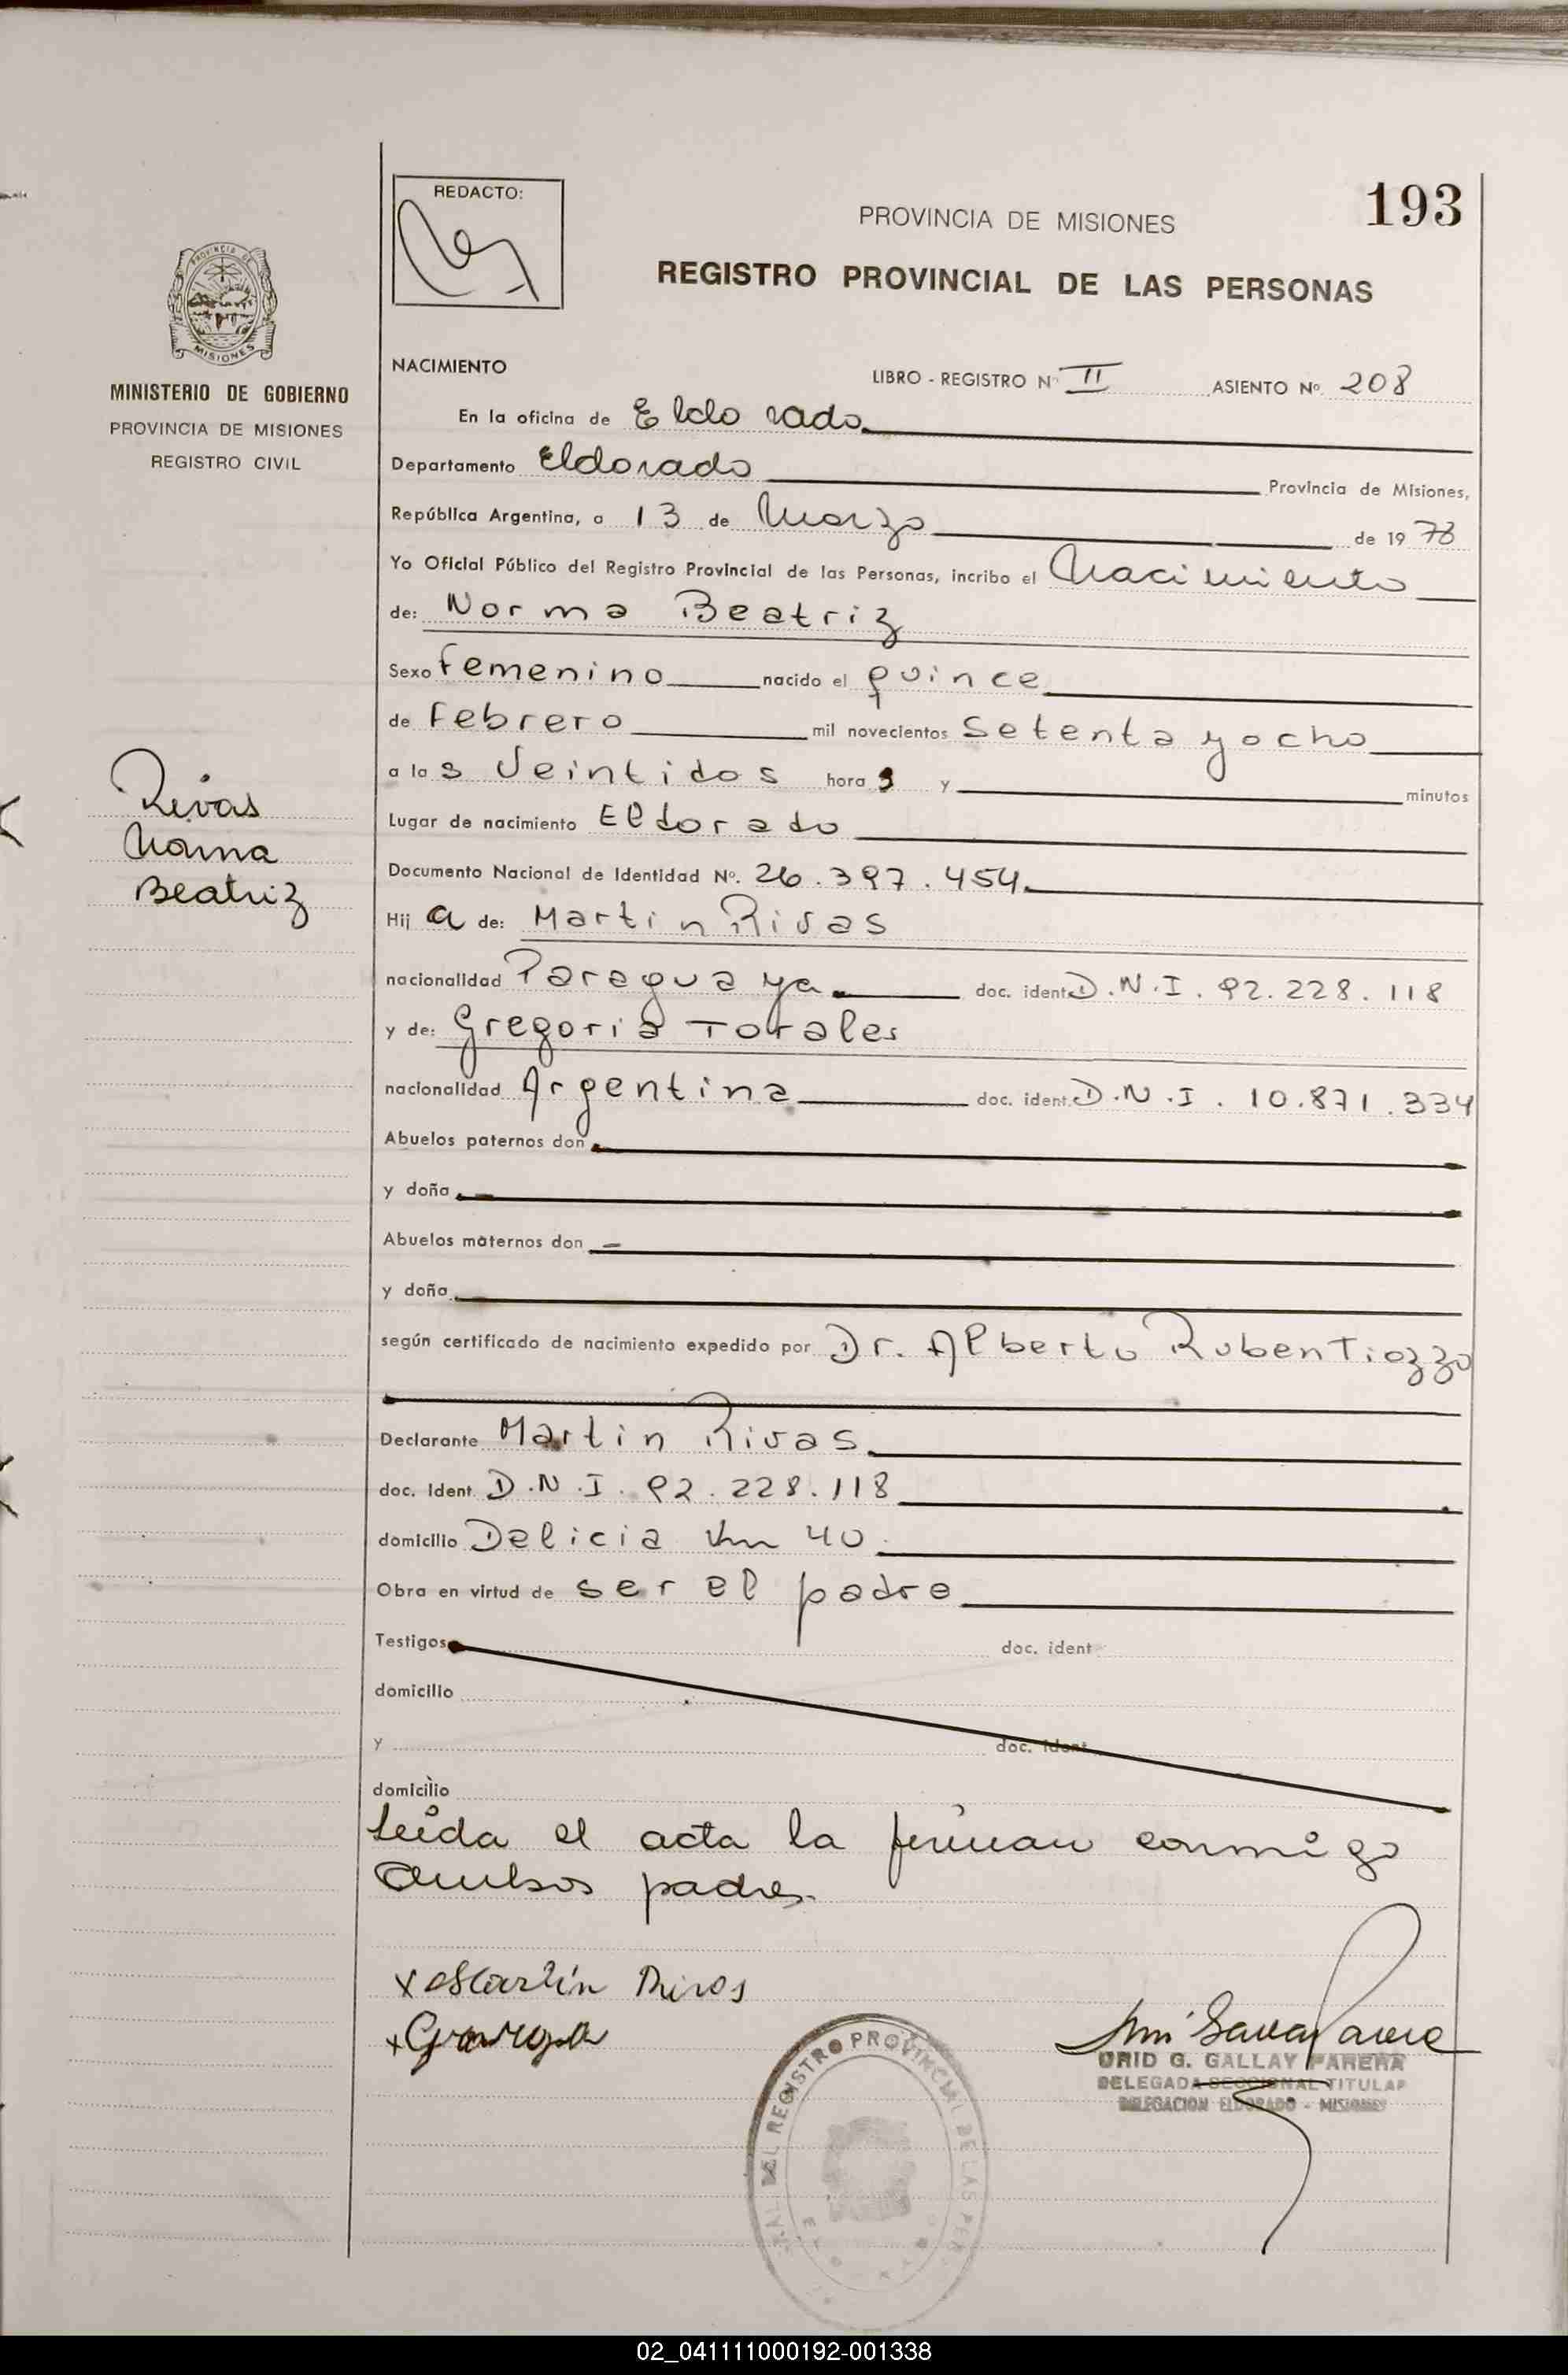 REDACTO:
193
PROVINCIA DE MISIONES
REGISTRO PROVINCIAL DE LAS PERSONAS
PROVINCIA DE
MISIONES
MINISTERIO DE GOBIERNO
PROVINCIA DE MISIONES
REGISTRO CIVIL
NACIMIENTO
LIBRO - REGISTRO Nº II ASIENTO Nº 208
En la oficina de Eldorado
Departamento Eldorado Provincia de Misiones,
República Argentina, a 13 de Marzo de 1978
Yo Oficial Público del Registro Provincial de las Personas, incribo el Nacimiento
de: Norma Beatriz
Sexo Femenino nacido el quince
de Febrero mil novecientos setenta y ocho
a las Veintidos horas y minutos
Rivas
Norma
Beatriz
Lugar de nacimiento Eldorado
Documento Nacional de Identidad Nº. 26.397.454
Hija de: Martin Rivas
nacionalidad Paraguaya doc. ident. D.N.I. 92.228.118
y de: Gregoria Torales
nacionalidad Argentina doc. ident. D.N.I. 10.871.334
Abuelos paternos don
y doña
Abuelos maternos don
y doña
según certificado de nacimiento expedido por Dr. Alberto Ruben Tiozzo
Declarante Martin Rivas
doc. ident. D.N.I. 92.228.118
domicilio Delicia Km 40
Obra en virtud de ser el padre
Testigos doc. ident
domicilio
y doc. ident
domicilio
Leida el acta la firman conmigo
ambos padres.
x Martín Rivas
x
REGISTRO PROVINCIAL DE LAS PER
G. GALLAY PARERA
DELEGADA SECCIONAL TITULAR
DELEGACION ELDORADO - MISIONES
02_041111000192-001338